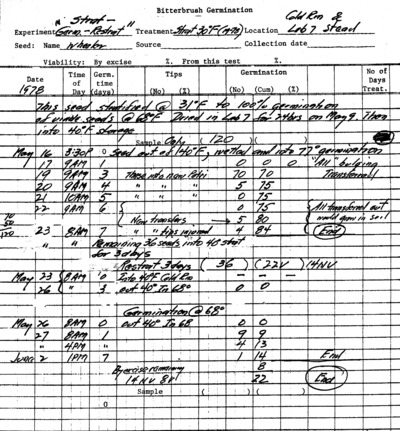 Bitterbrush Germination
"Strat-
Cold Rm &
Experiment Germ.-Restrat" Treatment Strat 30°F (1978) Location Lab 7 stead
Seed: Name Wheeler Source Collection date
Viability: By excise % From this test %
Date Time of Day Germ. time (days) Tips Germination No of Days Treat.
1978 (No) (%) (No) (Cum) (%)
This seed stratified @ 31°F to 100% germination
of viable seeds @ 68°F Dried in Lab 7 for 24 hrs on May 9. Then
into 40°F storage
Sample Only (120)
May 16 3:30P 0 Seed out of 40°F, wetted and into 77° germination
17 9AM 1 0 0 0 "All" bulging
19 9AM 3 These into new Petri 70 70 Transferred
20 9AM 4 " " " 5 75
21 10AM 5 " " " 0 75
22 9AM 6 0 75 All transferred out
Non transfers → 5 80 would grow in soil
23 8AM 7 " " tips injured 4 84 End
" " Remaining 36 seeds into 40 strat
for 3 days
Restrat 3 days (36) (22V) 14NV
May 23 8AM 0 Into 40°F Cold Rm - - -
26 " 3 out 40° In 68° 0 0
Germination @ 68°
May 26 8AM 0 out 40° In 68 0 0
27 8AM 1 9 9
" 4PM " 4 13
June 2 1PM 7 1 14 End
By excise remaining 8
14 NV 8V 22 End
Sample ( ) ( )
0